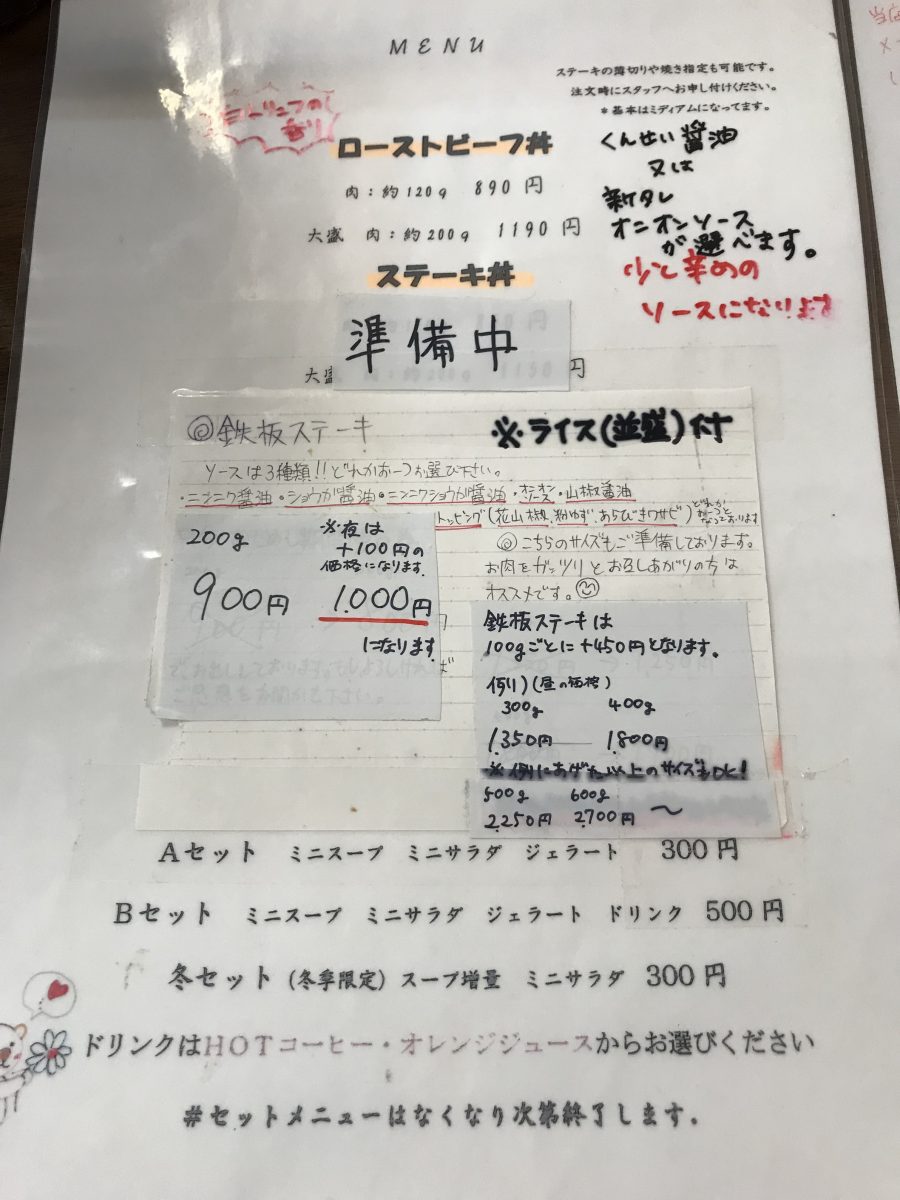 MENU
ステーキの薄切りや焼き指定も可能です。
注文時にスタッフへお申し付けください。
*基本はミディアムになってます。
トリュフの
香り
ローストビーフ丼
肉：約120g 890円
大盛 肉：約200g 1190円
くんせい醤油
又は
新タレ
オニオンソース
が選べます。
少し辛めの
ソースになります
ステーキ丼
準備中
大盛
円
◎鉄板ステーキ
※ライス(並盛)付
ソースは3種類!!どれかお一つお選び下さい。
・ニンニク醤油・ショウガ醤油・ニンニクショウガ醤油・オニオンソース・山椒醤油
トッピング(花山椒、粉ゆず、あらびきワサビ)どれかお一つとなっております
200g
※夜は
+100円の
価格になります
900円
1.000円
になります
◎こちらのサイズもご準備しております。
お肉をガッツリとお召しあがりの方は
オススメです。
鉄板ステーキは
100gごとに+450円となります。
例)(昼の価格)
300g 400g
1.350円 1.800円
※例にあげた以上のサイズもOK!
500g 600g
2.250円 2.700円 〜
Aセット ミニスープ ミニサラダ ジェラート 300円
Bセット ミニスープ ミニサラダ ジェラート ドリンク 500円
冬セット（冬季限定）スープ増量 ミニサラダ 300円
ドリンクはHOTコーヒー・オレンジジュースからお選びください
#セットメニューはなくなり次第終了します．